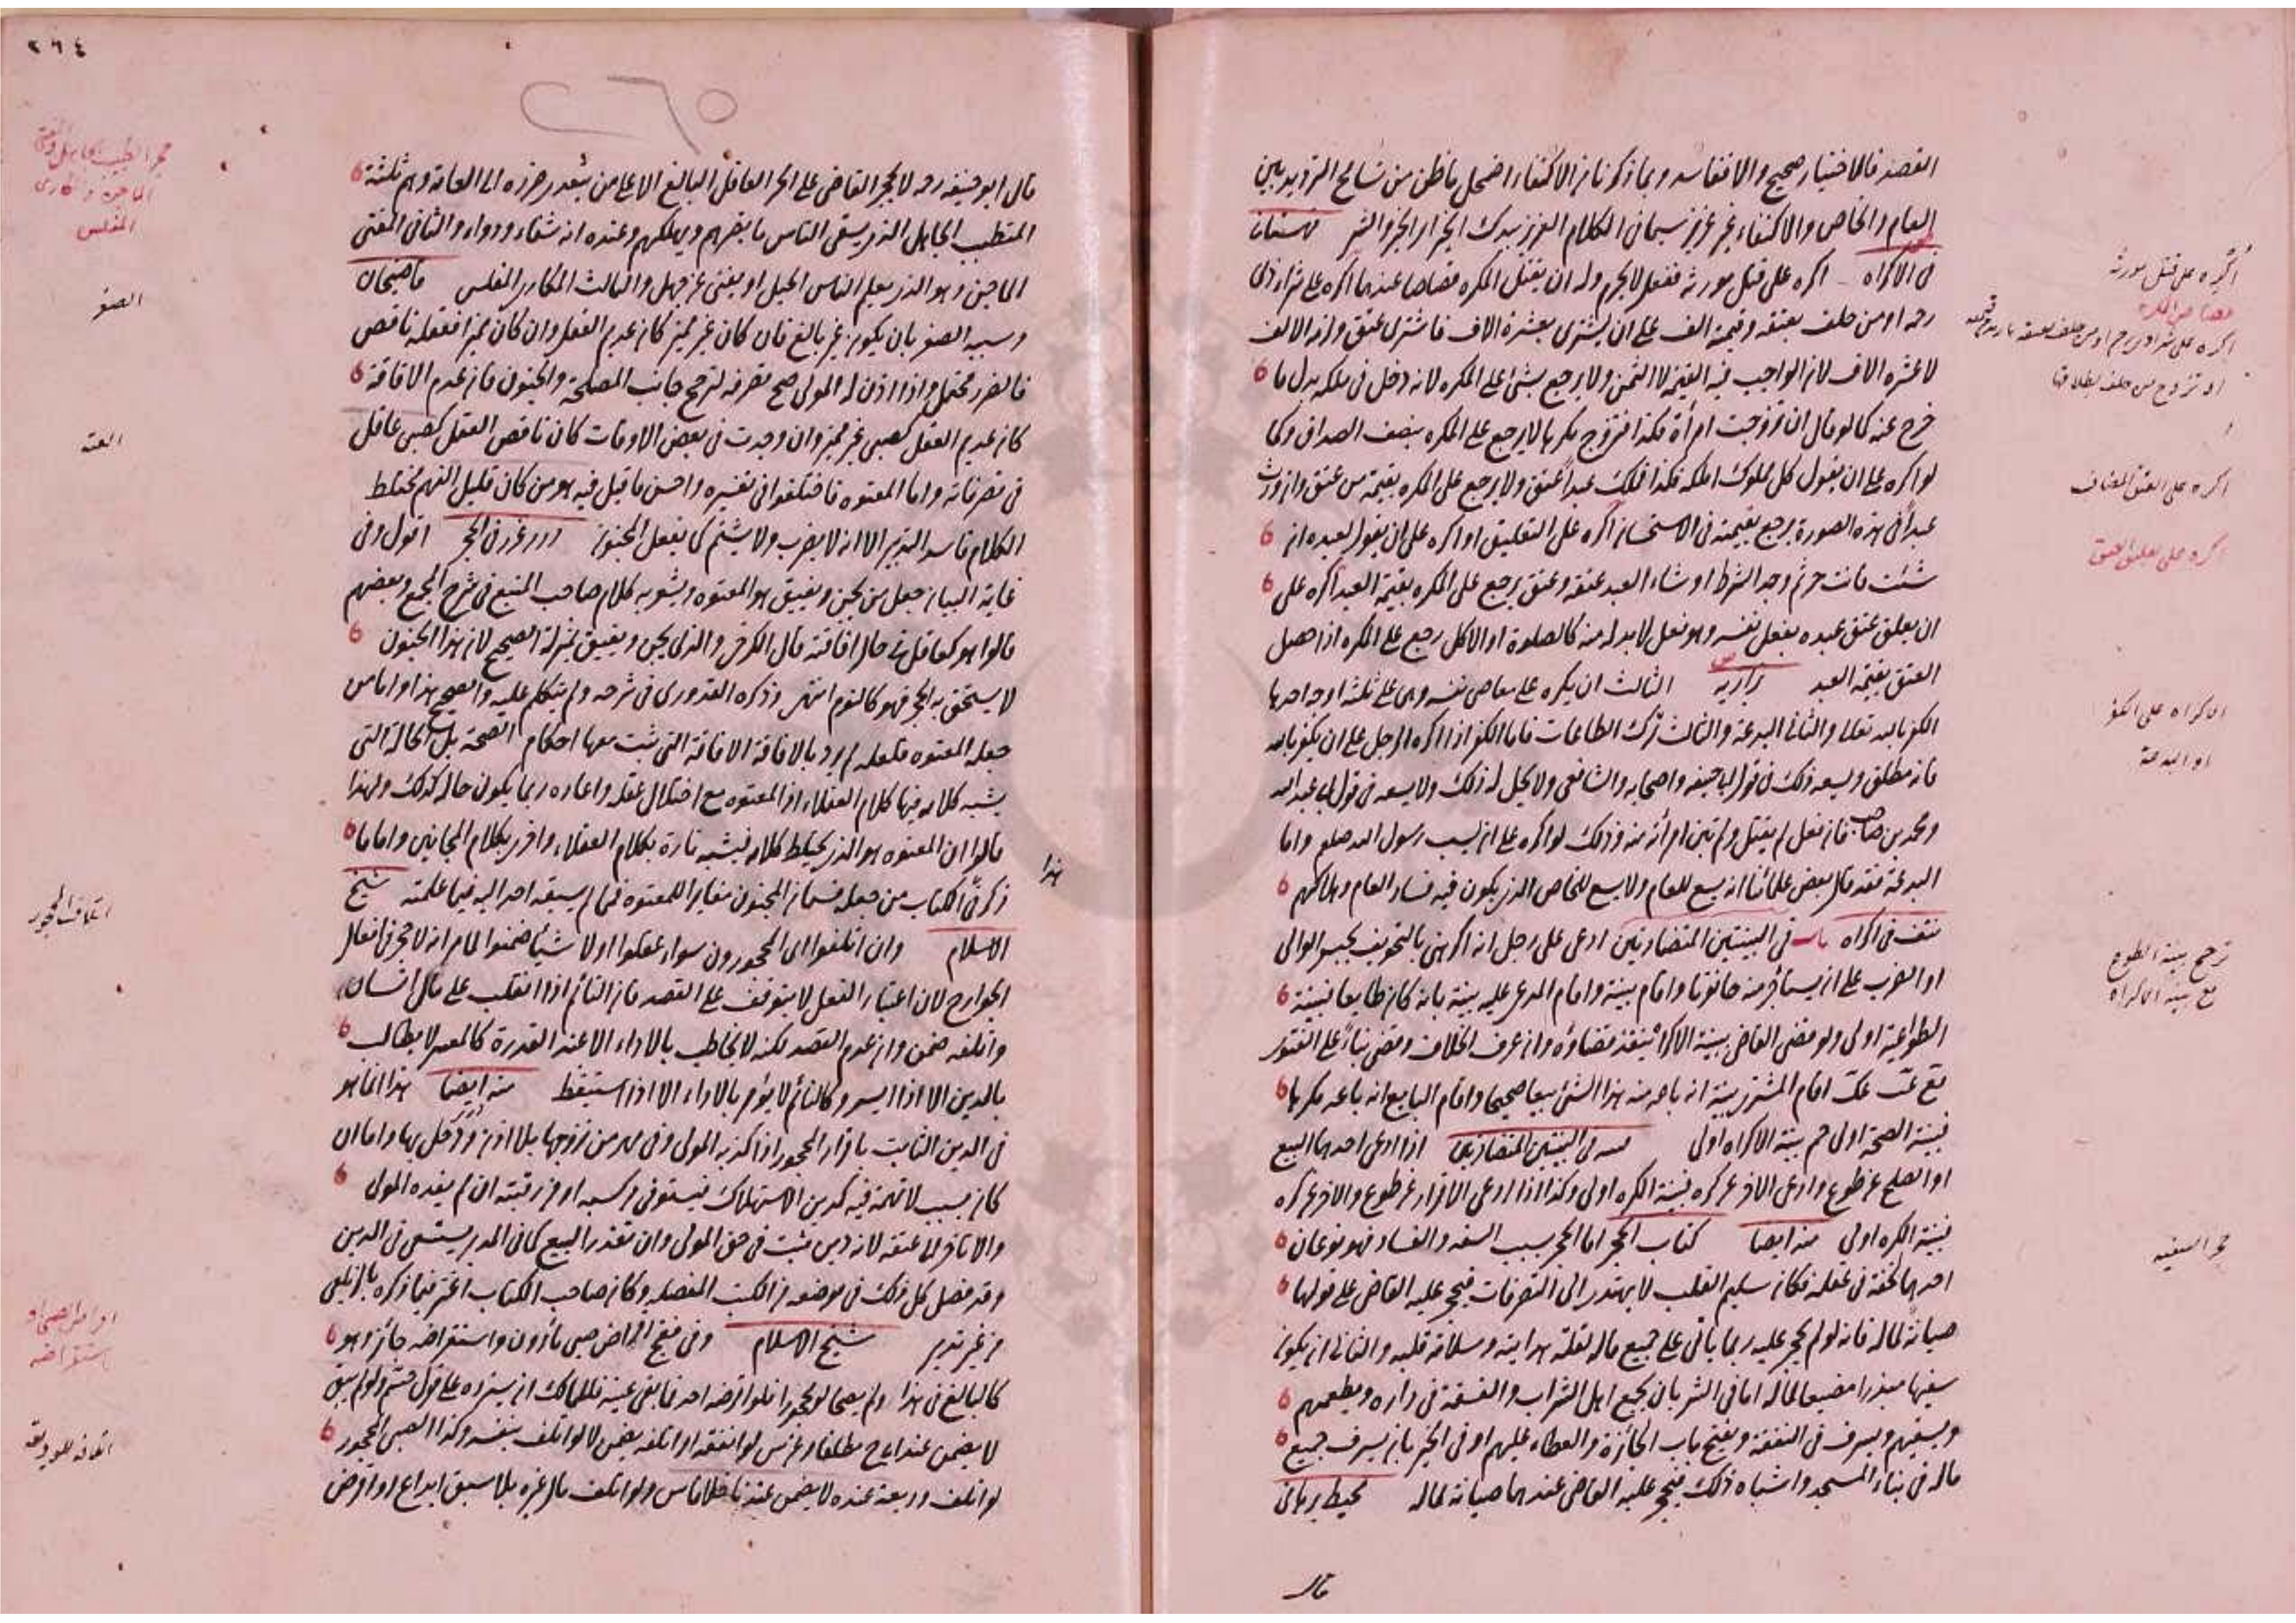 القصد فالاختيار صحيح والا ففاسد وبما ذكرنا من الاكتفاء اضمحل ما ظن من تسامح الترديد بين
العام والخاص والاكتفاء غير عزيز سيما فى الكلام العزيز بيدك الخير اى الخير والشر قهستانى
فى الاكراه اكره على قتل مورثه ففعل لا يحرم وله ان يقتل المكره قصاصا عندهما اكره على شراء ذى
رحمه او من حلف بعتقه وقيمته الف على ان يشترى بعشرة الاف فاشترى عتق ولزمه الالف
لا عشرة الاف لان الواجب فيه القيمة لا الثمن ولا يرجع بشئ على المكره لانه دخل فى ملكه بدل ما
خرج عنه كما لو قال ان تزوجت امرأة فكذا فتزوج مكرها لا يرجع على المكره بنصف الصداق وكما
لو اكره على ان يقول كل مملوك املكه فكذا فملك عبدا عتق ولا يرجع على المكره بقيمة من عتق وان ورث
عبدا فى هذه الصورة يرجع بقيمته فى الاستحسان اكره على التعليق او اكره على ان يقول لعبده ان
شئت فانت حر ثم وجد الشرط او شاء العبد عتقه وعتق يرجع على المكره بقيمة العبد اكره على
ان يعلق عتق عبده بفعل نفسه وهو فعل لا بد له منه كالصلوة او الاكل رجع على المكره اذا حصل
العتق بقيمة العبد بزازيه الثالث ان يكره على معاصى نفسه وهى على ثلثة اوجه احدها
الكفر بالله تعالى والثانى البدعة والثالث ترك الطاعات فاما الكفر اذا اكره الرجل على ان يكفر بالله
فانه مطلق ويسعه ذلك فى قول ابى حنيفة واصحابه والشافعى ولا يحل له ذلك ولا يسعه فى قول ابى عبد الله
ومحمد بن صاحب فان فعل لم يقتل ولم تبن امرأته منه وذلك لو اكره على ان يسب رسول الله صلعم واما
البدعة فقد قال بعض علمائنا انه يسع للعام ولا يسع للخاص الذى يكون فيه فساد العام وهلاكهم
نتف فى اكراه باب فى البينتين المتضادتين ادعى على رجل انه اكرهنى بالتخويف بحبس الوالى
او الضرب على ان يستأجر منه حانوتا واقام بينة واقام المدعى عليه بينة بانه كان طايعا فبينة
الطواعية اولى ولو قضى القاضى ببينة الاكراه ينفذ قضاؤه وان عرف الخلاف وقضى بناء على الفتوى
قع عت عك اقام المشترى بينة انه باعه منه هذا الشئ بيعا صحيحا واقام البايع انه باعه مكرها
فبينة الصحة اولى حم بينة الاكراه اولى قنيه فى البينتين المتضادتين اذا ادعى احدهما البيع
او الصلح عن طوع وادعى الاخر عن كره فبينة الكره اولى وكذا اذا ادعى الاقرار عن طوع والاخر عن كره
فبينة الكره اولى منه ايضا كتاب الحجر اما الحجر بسبب السفه والفساد فهو نوعان
احدهما لخفة فى عقله فكان سليم القلب لا يهتدى الى التصرفات فيحجر عليه القاضى على قولهما
صيانة لماله فانه لو لم يحجر عليه ربما يأتى على جميع ماله لقلة هدايته وسلامة قلبه والثانى ان يكون
سفيها مبذرا مضيعا لماله اما فى الشر بان يجمع اهل الشراب والفسقة فى داره ويطعمهم
ويسقيهم ويسرف فى النفقة ويفتح باب الجائزة والعطاء عليهم او فى الخير بان يسرف جميع
ماله فى بناء المسجد واشباه ذلك فيحجر عليه القاضى عندهما صيانة لماله محيط برهانى
قال
اكره على قتل مورثه
قصاص المكره
او تزوج من حلف بطلاقها
اكره على العتق المضاف
اكره على تعليق العتق
الاكراه على الكفر
او البدعة
ترجح بينة الطوع
مع بينة الاكراه
حجر السفيه
٢٦٤
٢٦٥
قال ابو حنيفة رحه لا يحجر القاضى على الحر العاقل البالغ الا على من يتعدى ضرره الى العامة وهم ثلثة
المتطبب الجاهل الذى يسقى الناس ما يضرهم ويهلكهم وعنده انه شفاء ودواء والثانى المفتى
الماجن وهو الذى يعلم الناس الحيل او يفتى عن جهل والثالث المكارى المفلس قاضيخان
وسببه الصغر بان يكون غير بالغ فان كان غير مميز كان عديم العقل وان كان مميزا فعقله ناقص
فالضرر محتمل واذا اذن له المولى صح تصرفه لترجح جانب المصلحة والجنون فان عدم الافاقة
كان عديم العقل كصبى غير مميز وان وجدت فى بعض الاوقات كان ناقص العقل كصبى عاقل
فى تصرفاته واما المعتوه فاختلفوا فى تفسيره واحسن ما قيل فيه هو من كان قليل الفهم مختلط
الكلام فاسد التدبير الا انه لا يضرب ولا يشتم كما يفعل المجنون درر غرر فى الحجر اقول وفى
غاية البيان جعل من يجن ويفيق هو المعتوه ويشوبه كلام صاحب المنبع فى شرح المجمع وبعضهم
قالوا هو كعاقل فى حال افاقته قال الكرخى والذى يجن ويفيق بمنزلة الصحيح لان هذا الجنون
لا يستحق به الحجر فهو كالنوم انتهى وذكره القدورى فى شرحه ولم يتكلم عليه والصحيح هذا واما من
جعله المعتوه فلعله لم يرد بالافاقة الافاقة التى يثبت معها احكام الصحة بل الحالة التى
يشبه كلامه فيها كلام العقلاء اذ المعتوه مع اختلال عقله واعاده ربما يكون حاله كذلك ولهذا
قالوا ان المعتوه هو الذى يختلط كلامه فيشبه تارة بكلام العقلاء واخرى بكلام المجانين واما ما
هذا
ذكر فى الكتاب من جعله قسما من المجنون مغايرا للمعتوه فمما لم يسبقه احد اليه فيما علمته شيخ
الاسلام وان اتلفوا اى المحجورون سواء عقلوا او لا شيئا ضمنوا لما مر انه لا حجر فى افعال
الجوارح لان اعتبار الفعل لا يتوقف على القصد فان النائم اذا انقلب على مال انسان
واتلفه ضمن وان عدم القصد لكنه لا يخاطب بالاداء الا عند القدرة كالمعسر لا يطالب
بالدين الا اذا ايسر وكالنائم لا يؤمر بالاداء الا اذا استيقظ منه ايضا هذا انما هو
فى الدين الثابت باقرار المحجور اذا كذبه المولى وفى مهر من تزوجها بلا اذن ودخل بها واما ان
كان بسبب لا تهمة فيه كدين الاستهلاك فيستوفى من كسبه او من رقبته ان لم يفده المولى
والا تاخر الى عتقه لانه دين يثبت فى حق المولى وان تعذر البيع كما فى المدبر يستسعى فى الدين
وقد فصل كل ذلك فى موضعه من الكتب المفصله وكان صاحب الكتاب اغتر فيما ذكره بالزيلعى
من غير تدبر شيخ الاسلام وفى صبى مأذون واستقراضه جائز وهو
كالبالغ فى هذا ولم يصحا لو محجورا فلو اقرضه احد فما بقى عينه فللمالك ان يسترده على قول حم ولو لم يبق
لا يضمن عند ابى ح مطلقا وعن س لو انفقه او اتلفه يضمن لا لو تلف بنفسه وكذا الصبى المحجور
لو اتلف وديعة عنده لا يضمن عندنا خلافا س ولو اتلف مال غيره بلا سبق ايداع او اقراض
حجر الطبيب الجاهل والمفتى
الماجن والمكارى
المفلس
الصغر
العته
اتلاف المحجور
اقراض الصبى او
استقراضه
اتلافه للوديعة